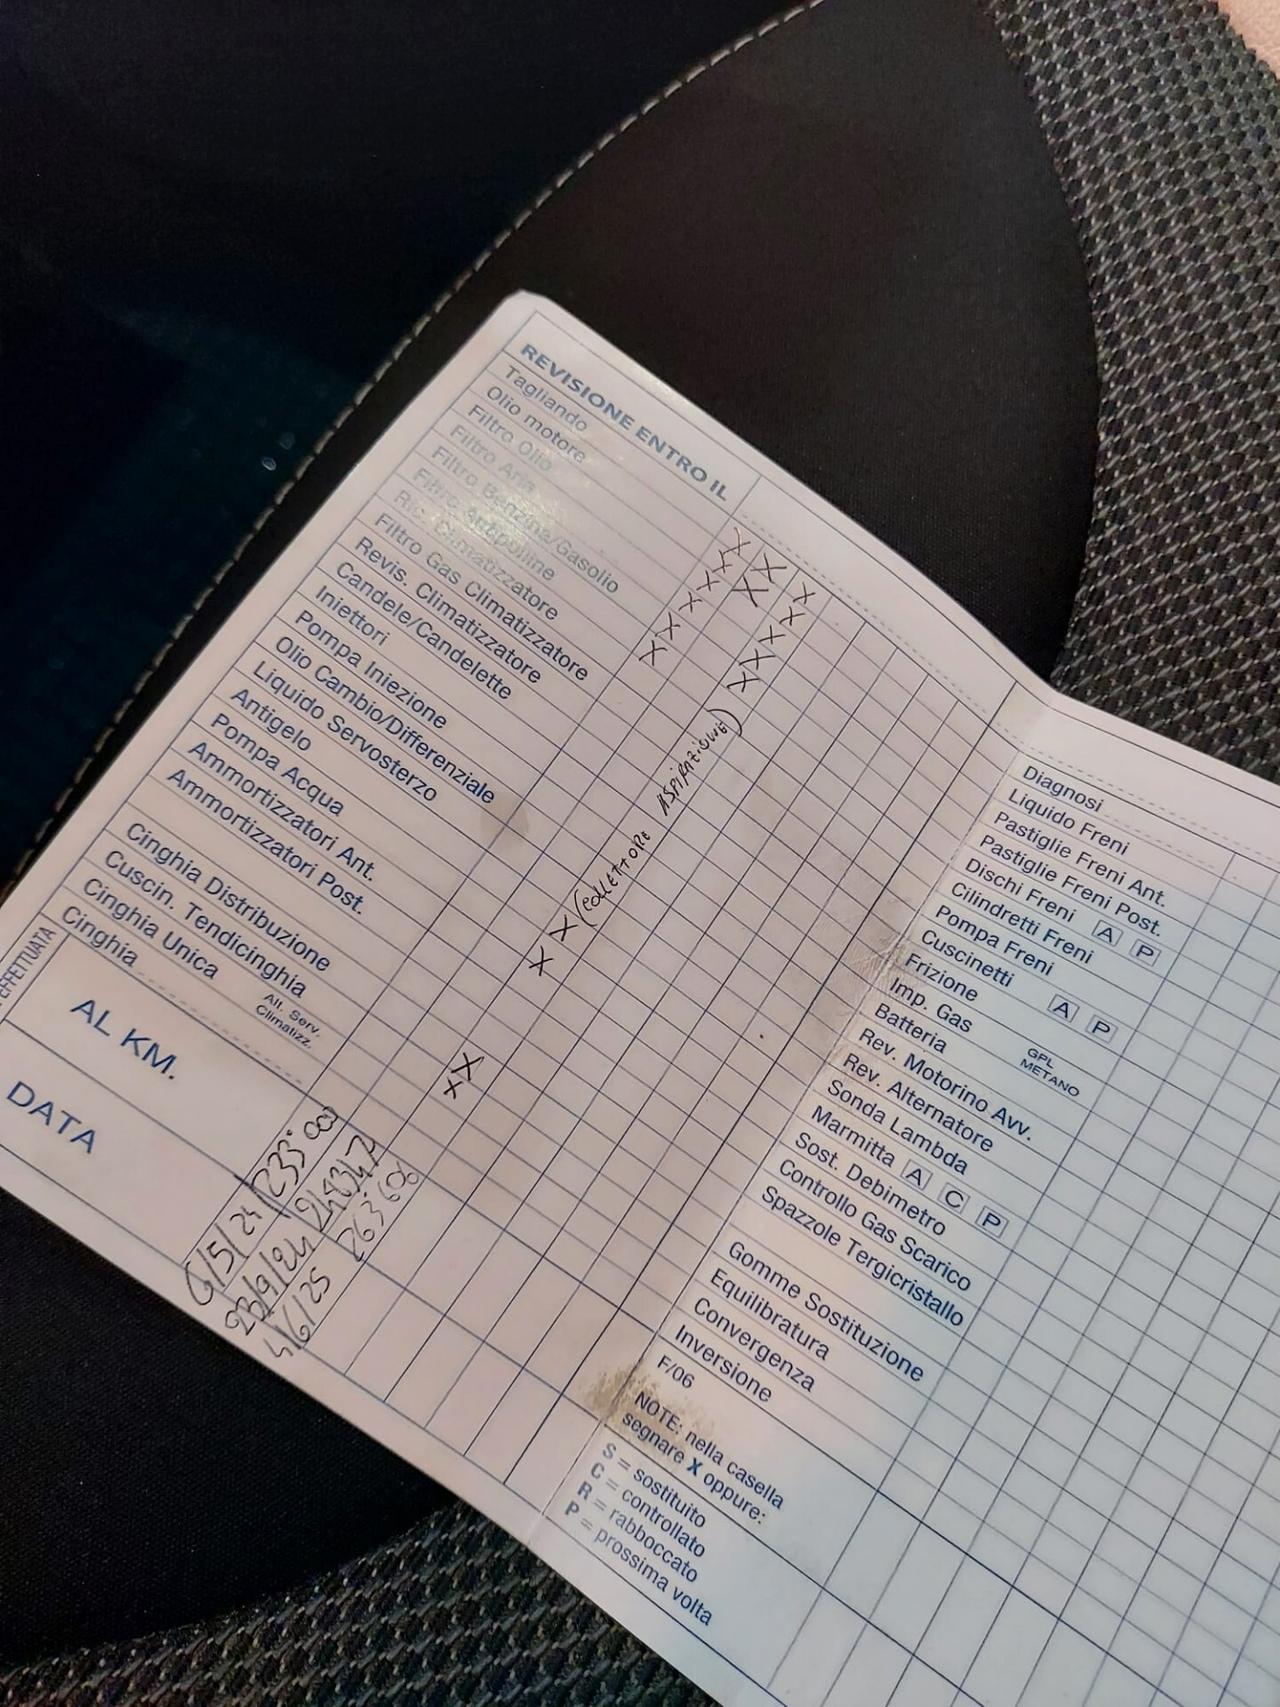 REVISIONE ENTRO IL
Tagliando
Olio motore
Filtro Olio
Filtro Aria
Filtro Benzina/Gasolio
Filtro Antipolline
Ric. Climatizzatore
Filtro Gas Climatizzatore
Revis. Climatizzatore
Candele/Candelette
Iniettori
Pompa Iniezione
Olio Cambio/Differenziale
Liquido Servosterzo
Antigelo
Pompa Acqua
Ammortizzatori Ant.
Ammortizzatori Post.
Cinghia Distribuzione
Cuscin. Tendicinghia
Cinghia Unica
Cinghia
All. Serv.
Climatizz.
EFFETTUATA
AL KM.
DATA
X X X X X X
X X X
X X X X X
X X (COLLETTORE ASPIRAZIONE)
X X
6/5/24 233.000
23/9/24 248347
4/6/25 263606
Diagnosi
Liquido Freni
Pastiglie Freni Ant.
Pastiglie Freni Post.
Dischi Freni A P
Cilindretti Freni
Pompa Freni
Cuscinetti A P
Frizione
Imp. Gas GPL
METANO
Batteria
Rev. Motorino Avv.
Rev. Alternatore
Sonda Lambda
Marmitta A C P
Sost. Debimetro
Controllo Gas Scarico
Spazzole Tergicristallo
Gomme Sostituzione
Equilibratura
Convergenza
Inversione
F/06
NOTE: nella casella
segnare X oppure:
S = sostituito
C = controllato
R = rabboccato
P = prossima volta